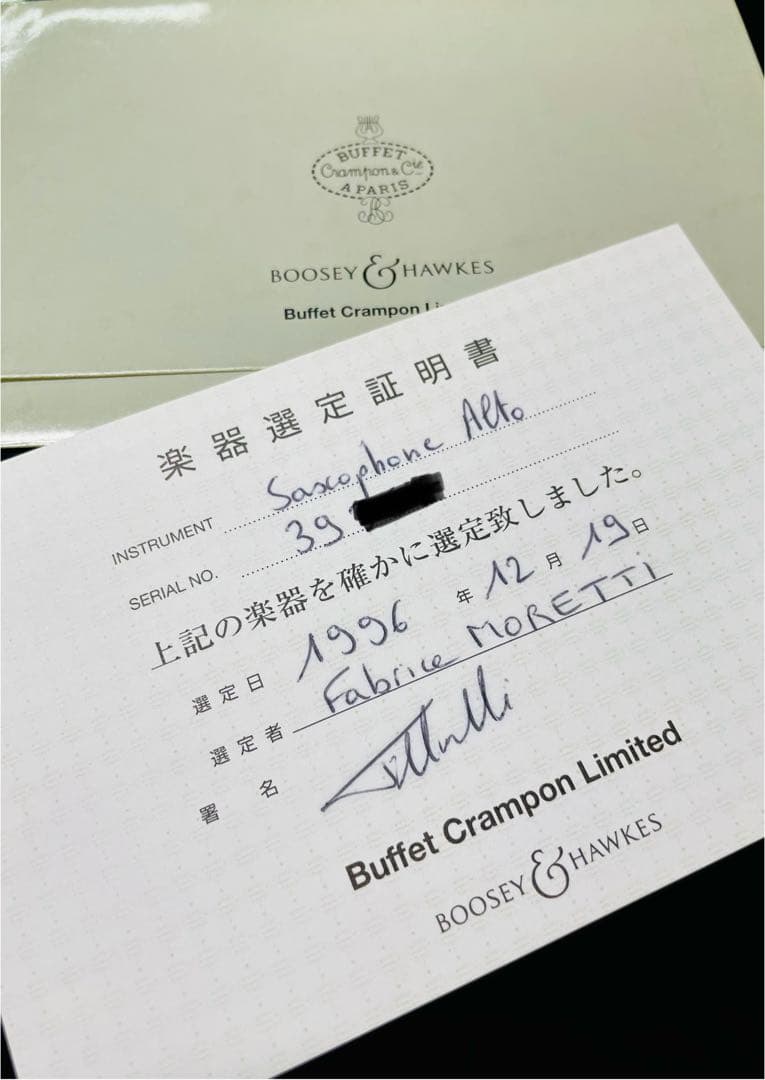 BUFFET
Crampon & Cie
A PARIS
BOOSEY & HAWKES
Buffet Crampon Li
楽器選定証明書
INSTRUMENT Saxophone Alto
SERIAL NO. 39
上記の楽器を確かに選定致しました。
選定日 1996年12月19日
選定者 Fabrice MORETTI
署名
Buffet Crampon Limited
BOOSEY & HAWKES